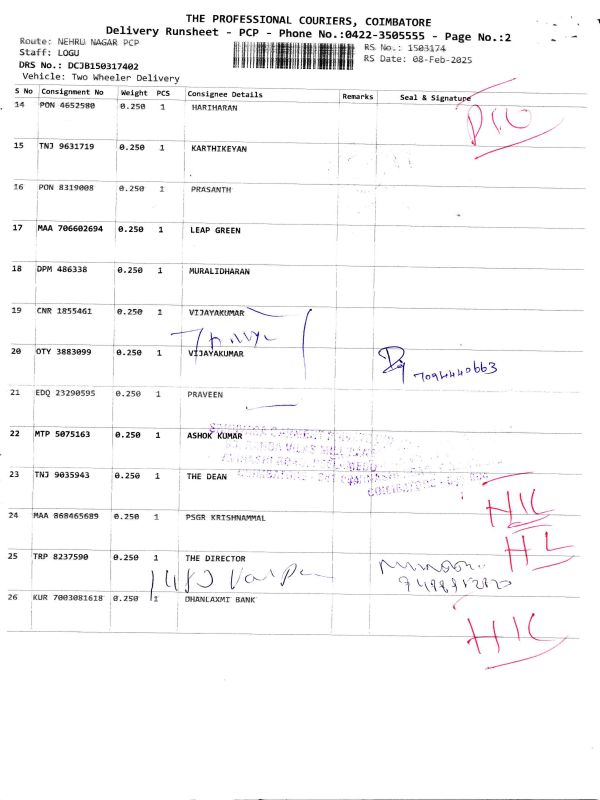 THE PROFESSIONAL COURIERS, COIMBATORE
Delivery Runsheet - PCP - Phone No.:0422-3505555 - Page No.:2
Route: NEHRU NAGAR PCP
RS No.: 1503174
Staff: LOGU
RS Date: 08-Feb-2025
DRS No.: DCJB150317402
Vehicle: Two Wheeler Delivery
S No Consignment No Weight PCS Consignee Details Remarks Seal & Signature
14 PON 4652580 0.250 1 HARIHARAN
15 TNJ 9631719 0.250 1 KARTHIKEYAN
16 PON 8319008 0.250 1 PRASANTH
17 MAA 706602694 0.250 1 LEAP GREEN
18 DPM 486338 0.250 1 MURALIDHARAN
19 CNR 1855461 0.250 1 VIJAYAKUMAR
20 OTY 3883099 0.250 1 VIJAYAKUMAR
7094440663
21 EDQ 23290595 0.250 1 PRAVEEN
22 MTP 5075163 0.250 1 ASHOK KUMAR
23 TNJ 9035943 0.250 1 THE DEAN
24 MAA 868465689 0.250 1 PSGR KRISHNAMMAL
25 TRP 8237590 0.250 1 THE DIRECTOR
26 KUR 7003081618 0.250 1 DHANLAXMI BANK